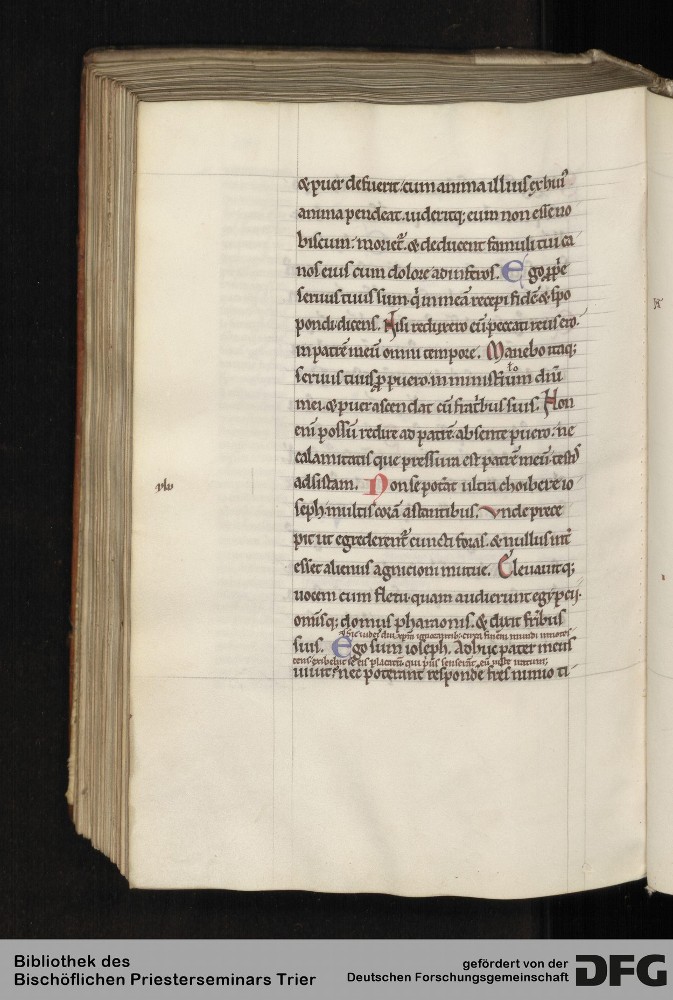 & puer defuerit. cum anima illius ex hui᷒
anima pendeat. uideritq; eum non esse uo
biscum. moriet᷑. & deducent famuli tui ca
nos eius cum dolore ad inferos. Ego ꝓp̄e
seruus tuus sum. q̇ in meā recepi fidē & spo
pondi dicens. Nisi reduxero eū peccati reus ero.
in patrē meū omni tempore. Manebo itaq;
seruus tuus ꝓ puero in ministerium dn̄i
mei. & puer ascendat cū fratribus suis. Non
eni possū redire ad patrē absente puero. ne
calamitatis que oppressura est patrē meū. testis
adsistam. Non se poterat ultra cohibere io
xlv
seph multis corā astantibus. Vnde prece
pit ut egrederent᷑ cuncti foras. & nullus int̓
esset alienus agnicioni mutue. Eleuauitq;
uocem cum fletu. quam audierunt egyptii.
omnisq; domus pharaonis. & dixit fr̄ibus
suis. Ego sum ioseph. Adhuc pater meus
uiuit? nec poterant respondere fr̄es nimio ti
Bibliothek des
Bischöflichen Priesterseminars Trier
gefördert von der
Deutschen Forschungsgemeinschaft
DFG